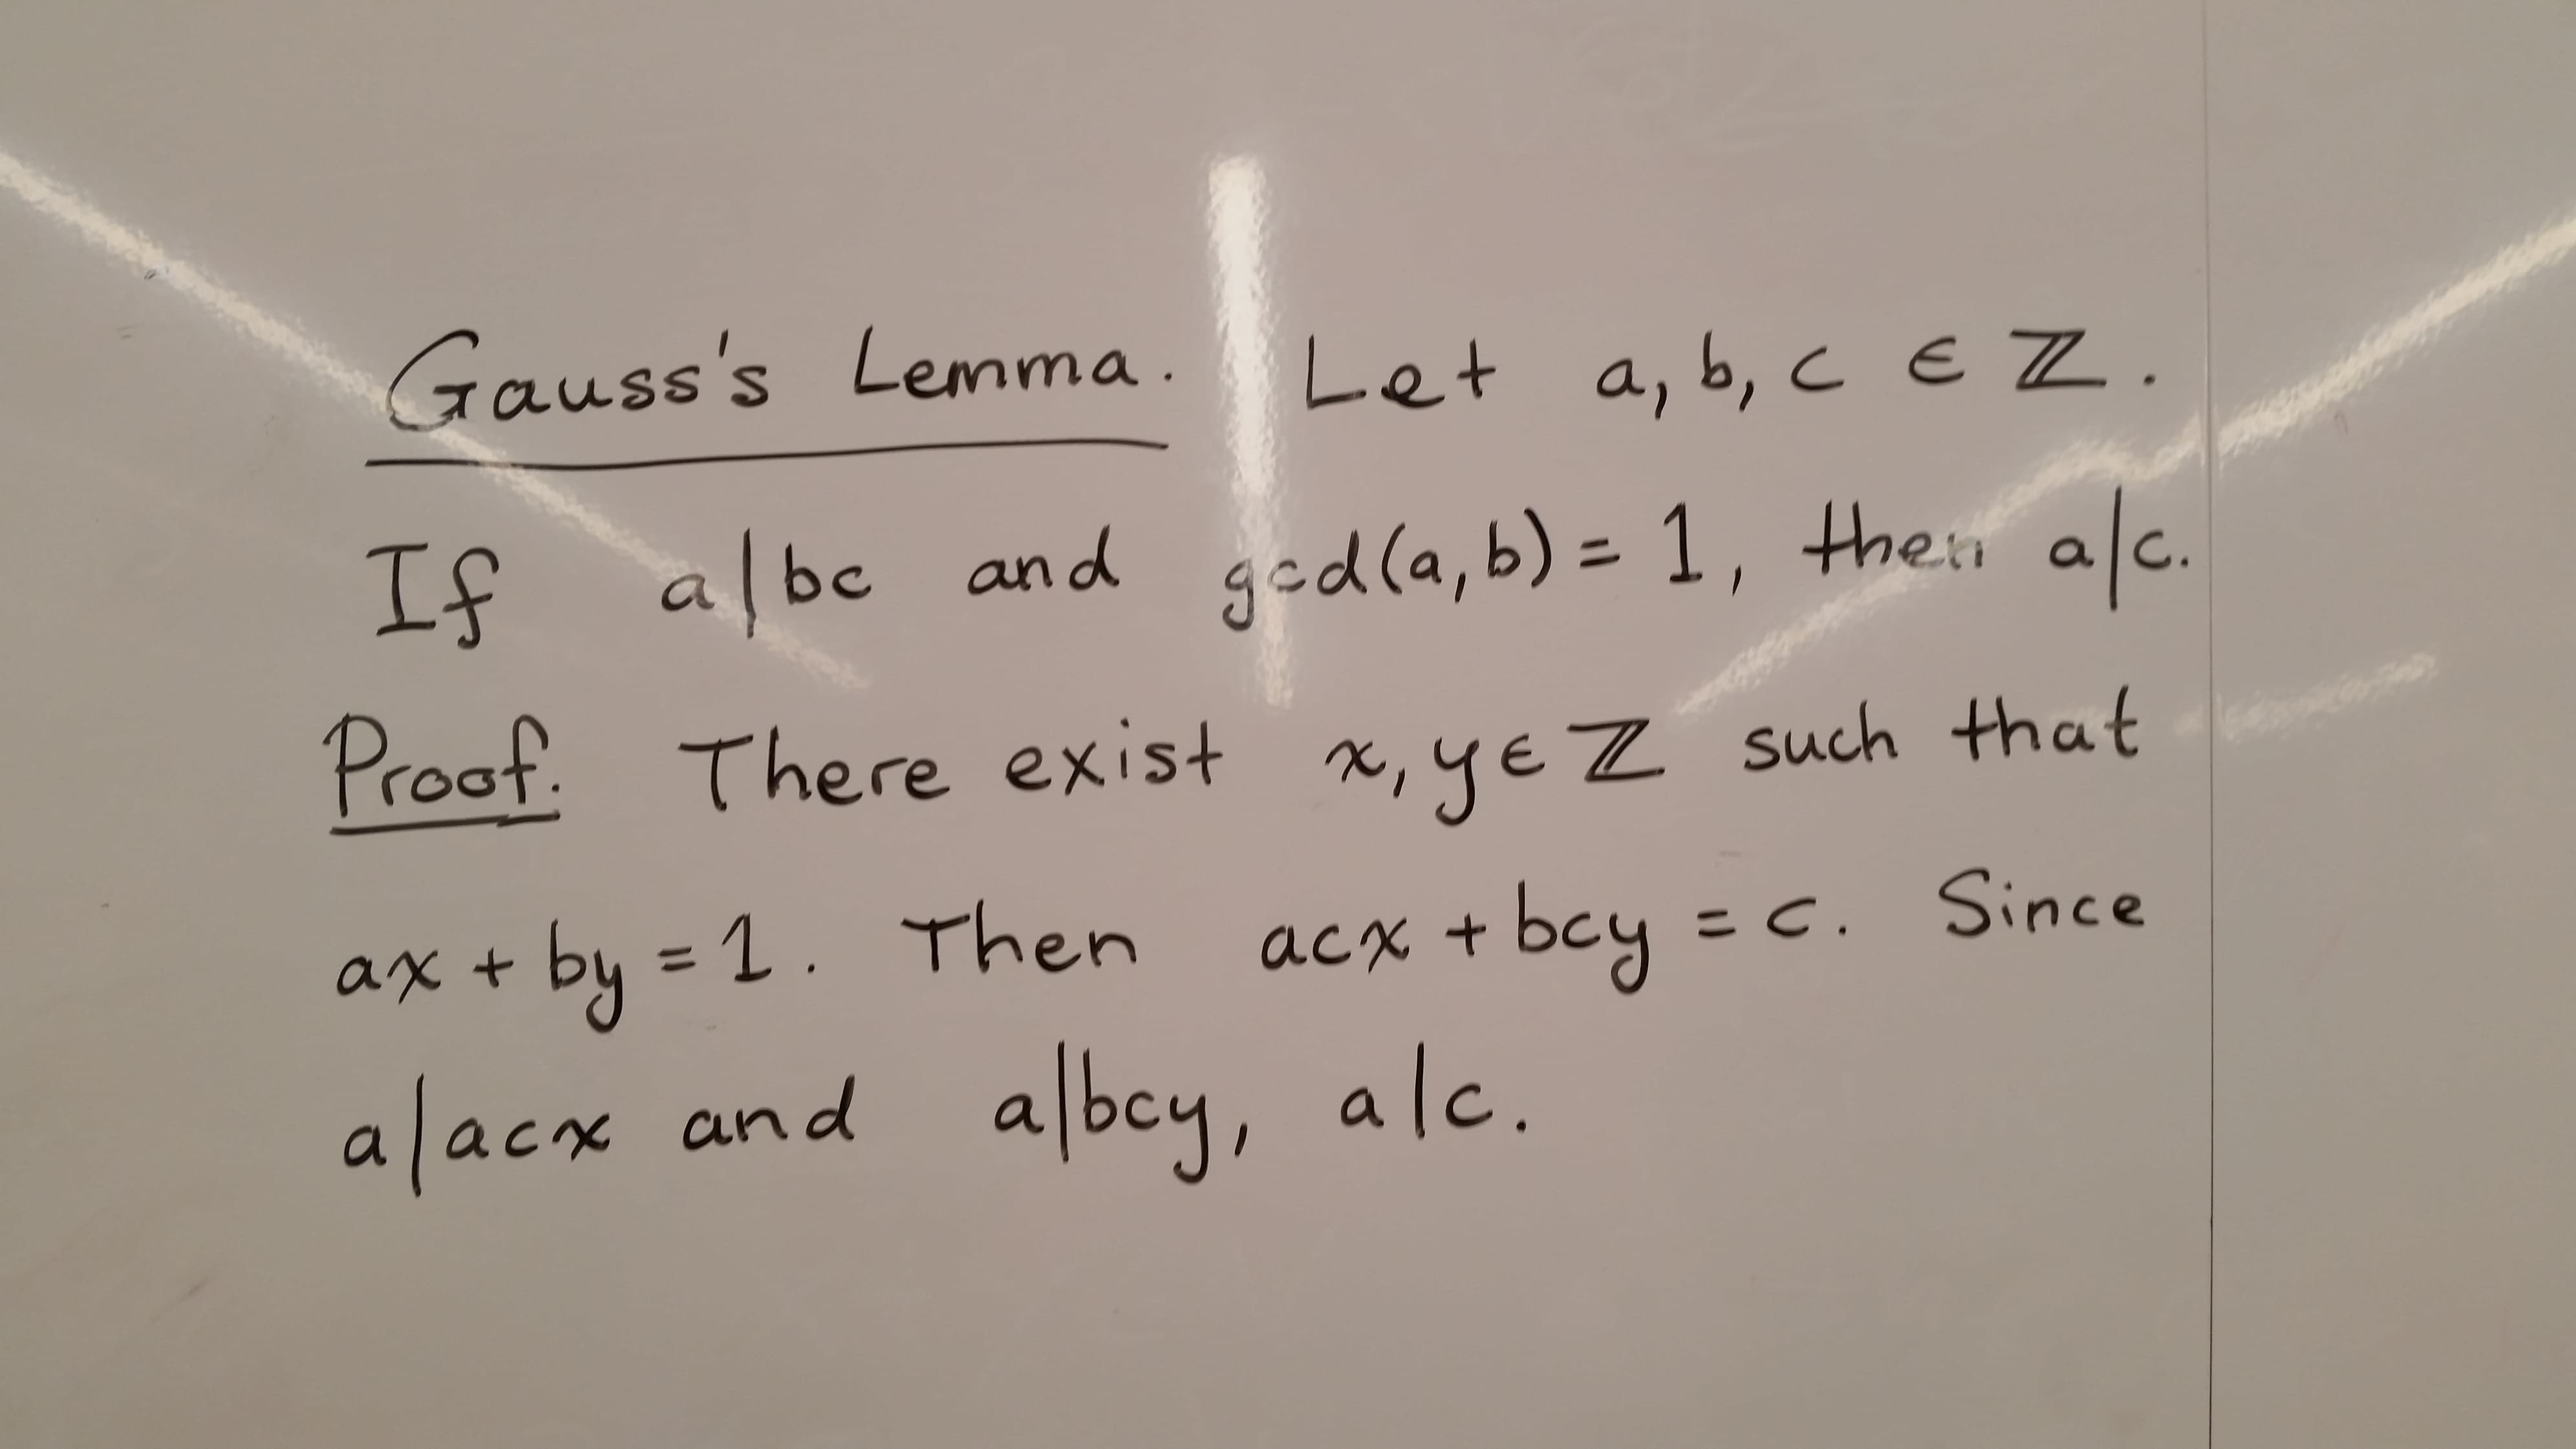 Gauss's Lemma. Let a, b, c ∈ ℤ.
If a|bc and gcd(a, b) = 1, then a|c.
Proof. There exist x, y ∈ ℤ such that
ax + by = 1. Then acx + bcy = c. Since
a|acx and a|bcy, a|c.